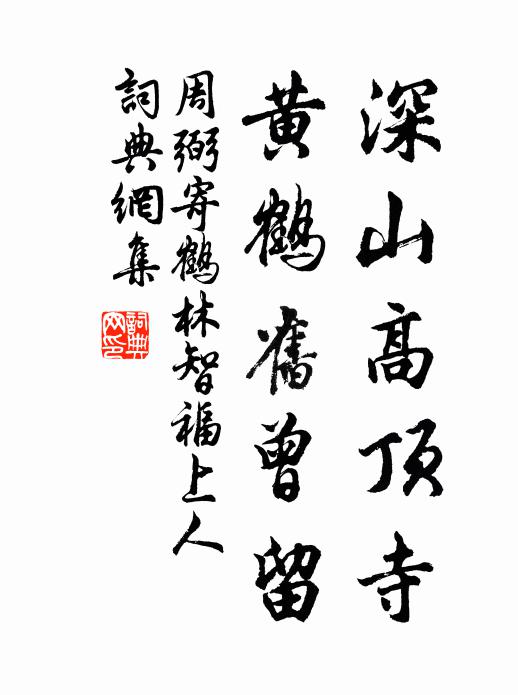 深山高顶寺
黄鶴舊曾留
周弼寄鶴林智福上人
詞典網集
詞典網印